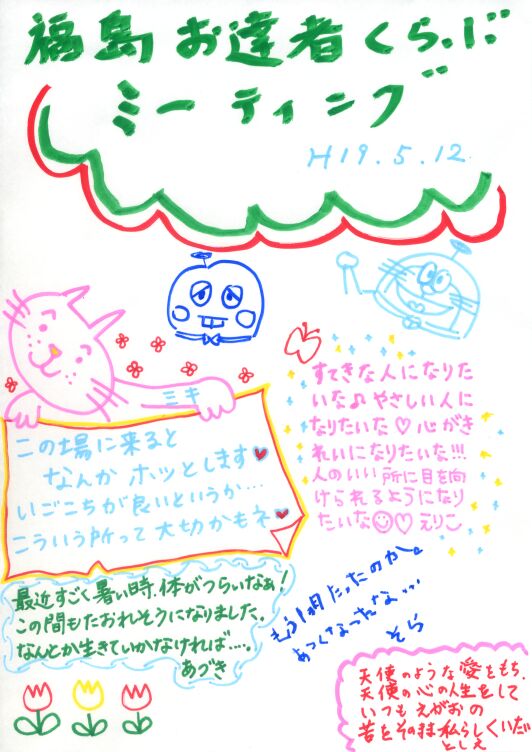 福島お達者くらぶ
ミーティング
H19.5.12.
ミキ
この場に来ると
なんかホッとします♥
いごこちが良いというか…
こういう所って大切かもネ♥
すてきな人になりた
いな♪やさしい人に
なりたいな♡心がき
れいになりたいな!!!
人のいい所に目を向
けられるようになり
たいな☺♡えりこ
最近すごく暑い時、体がつらいなぁ!
この間もたおれそうになりました。
なんとか生きていかなければ…。
あづき
もう1月たったのか。
あつくなったな…
そら
天使のような愛をもち、
天使の心の人生をして
いつもえがおの
昔をそのまま私らしくいたい
としえ